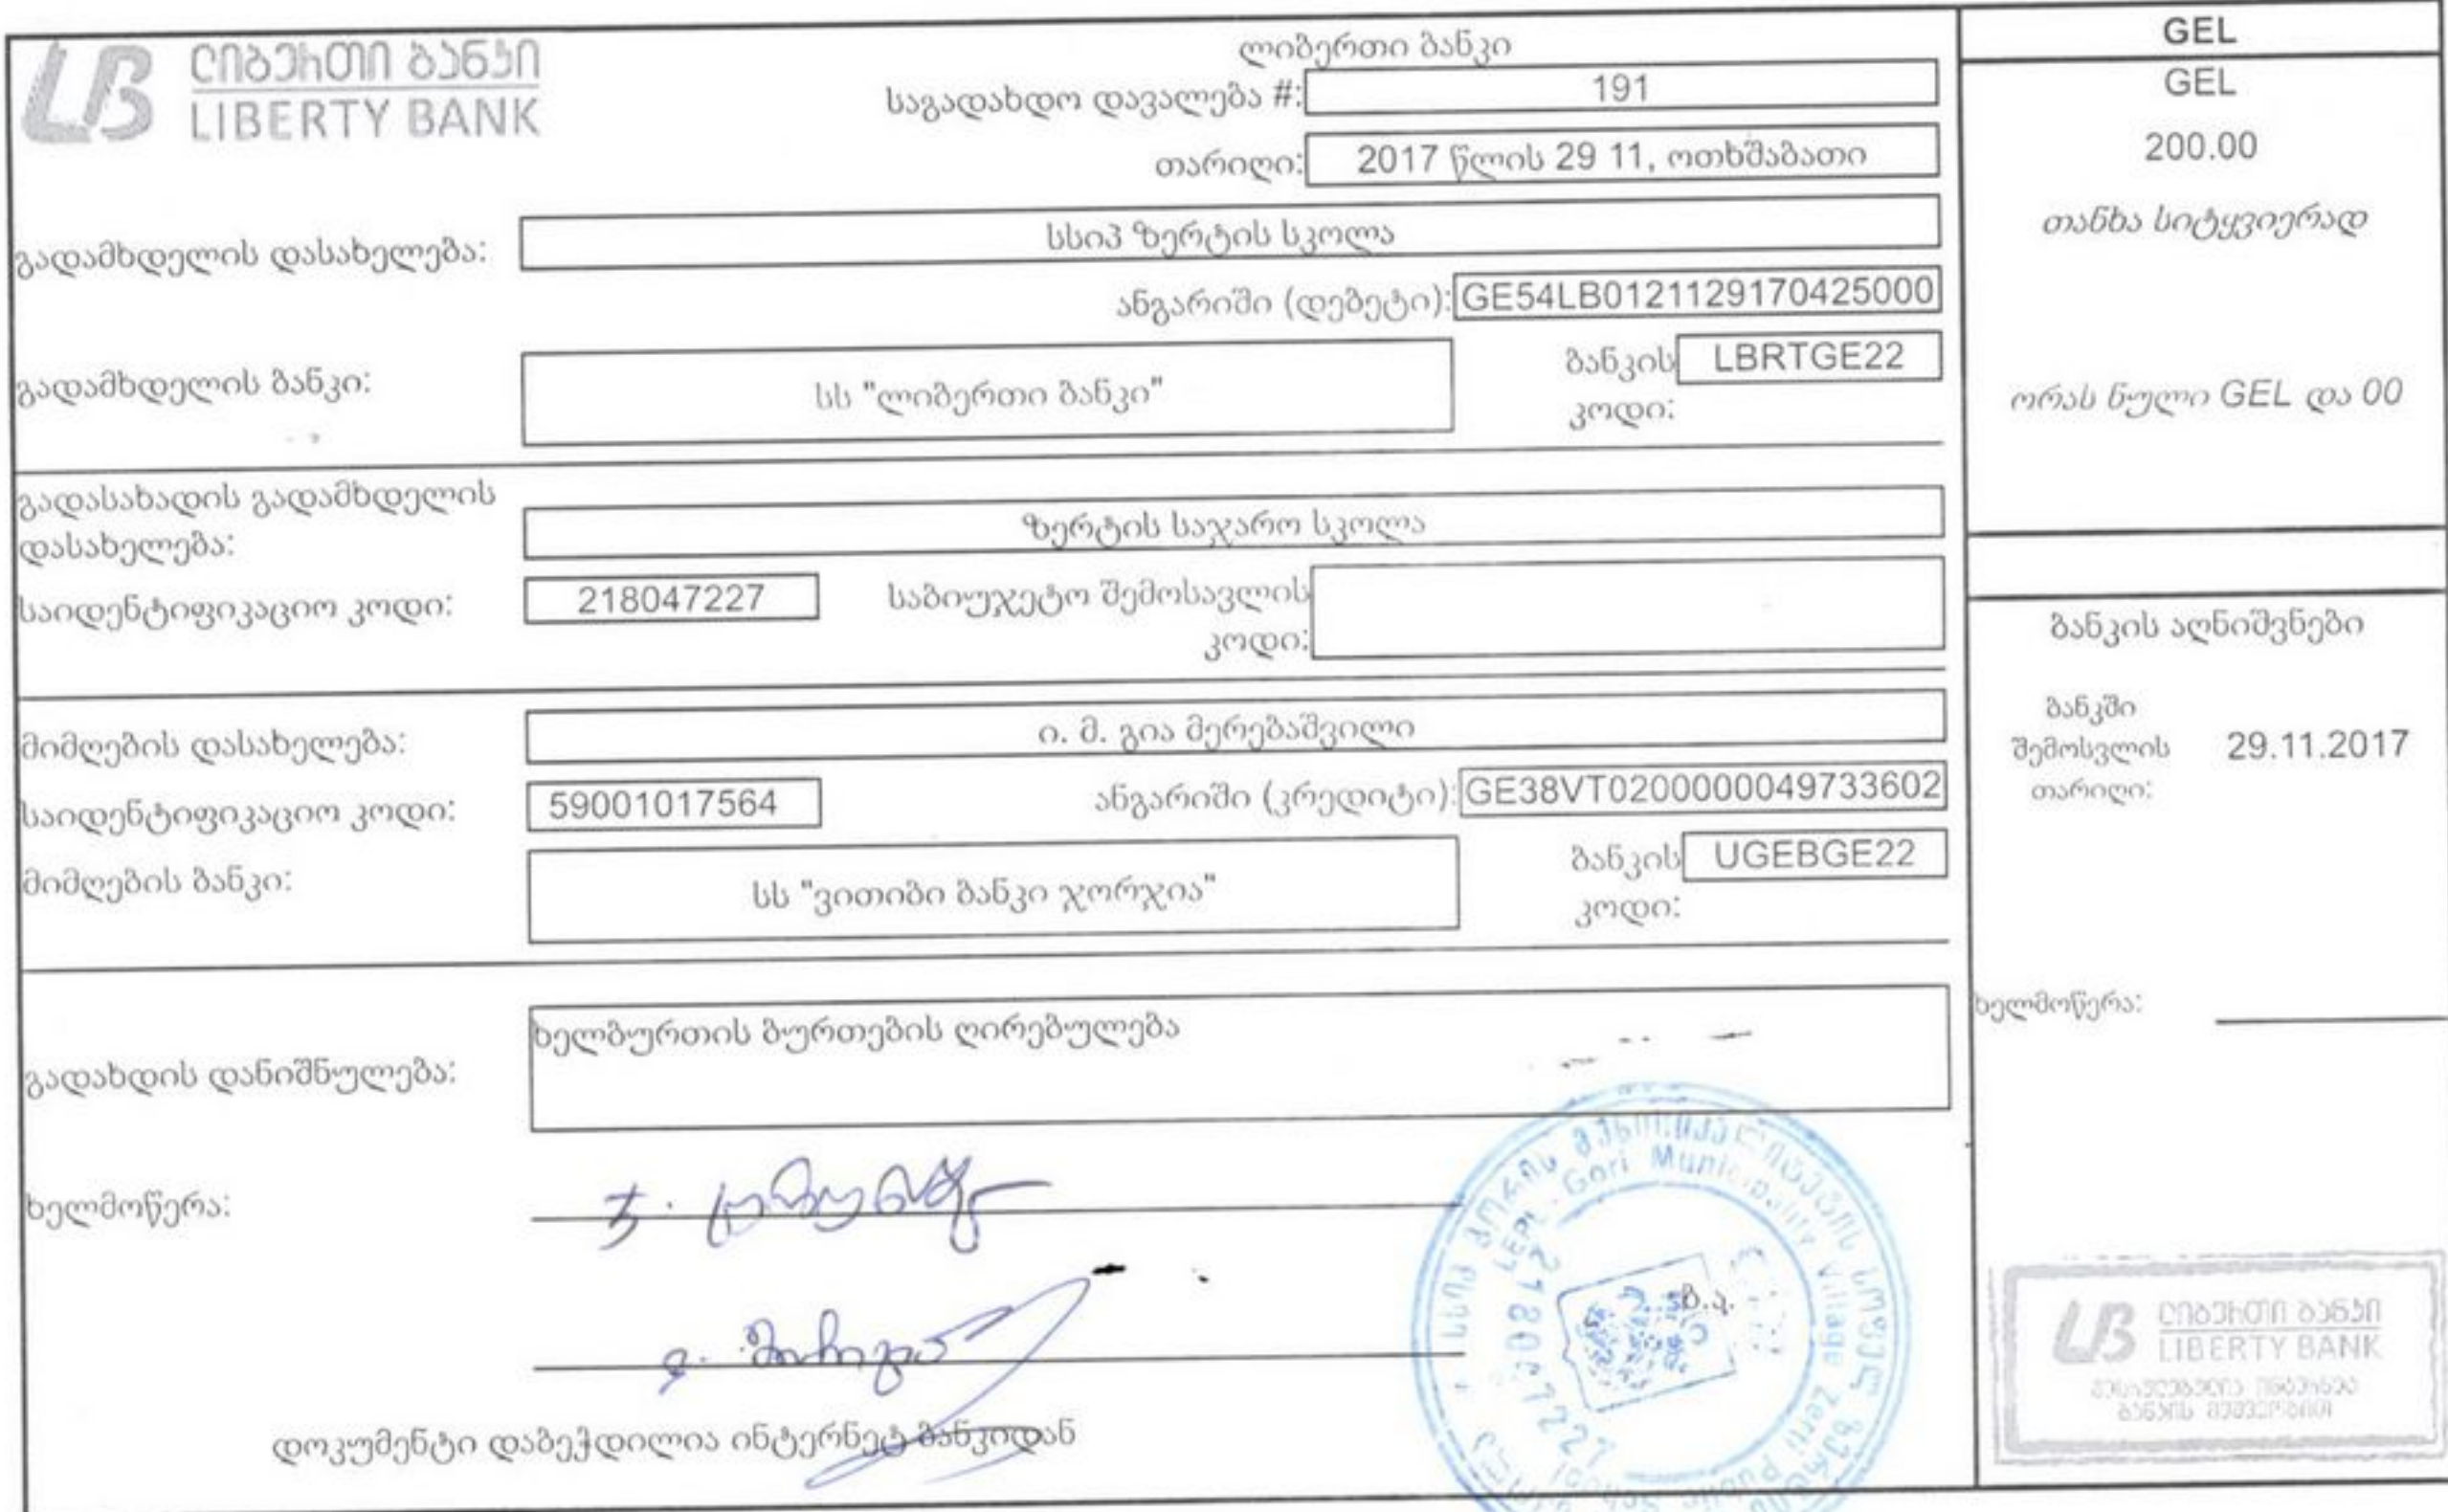 ლიბერთი ბანკი
LIBERTY BANK
ლიბერთი ბანკი
საგადახდო დავალება #: 191
თარიღი: 2017 წლის 29 11, ოთხშაბათი
გადამხდელის დასახელება: სსიპ ზერტის სკოლა
ანგარიში (დებეტი): GE54LB0121129170425000
გადამხდელის ბანკი: სს "ლიბერთი ბანკი" ბანკის კოდი: LBRTGE22
გადასახადის გადამხდელის
დასახელება: ზერტის საჯარო სკოლა
საიდენტიფიკაციო კოდი: 218047227 საბიუჯეტო შემოსავლის
კოდი:
მიმღების დასახელება: ი. მ. გია მერებაშვილი
საიდენტიფიკაციო კოდი: 59001017564 ანგარიში (კრედიტი): GE38VT0200000049733602
მიმღების ბანკი: სს "ვითიბი ბანკი ჯორჯია" ბანკის კოდი: UGEBGE22
გადახდის დანიშნულება: ხელბურთის ბურთების ღირებულება
ხელმოწერა:
ბ.ა.
დოკუმენტი დაბეჭდილია ინტერნეტ ბანკიდან
GEL
GEL
200.00
თანხა სიტყვიერად
ორას ნული GEL და 00
ბანკის აღნიშვნები
ბანკში
შემოსვლის 29.11.2017
თარიღი:
ხელმოწერა:
ლიბერთი ბანკი
LIBERTY BANK
შესრულებულია ინტერნეტ
ბანკის მეშვეობით
LEPL Gori Municipality Village Zerti Public School
218047227